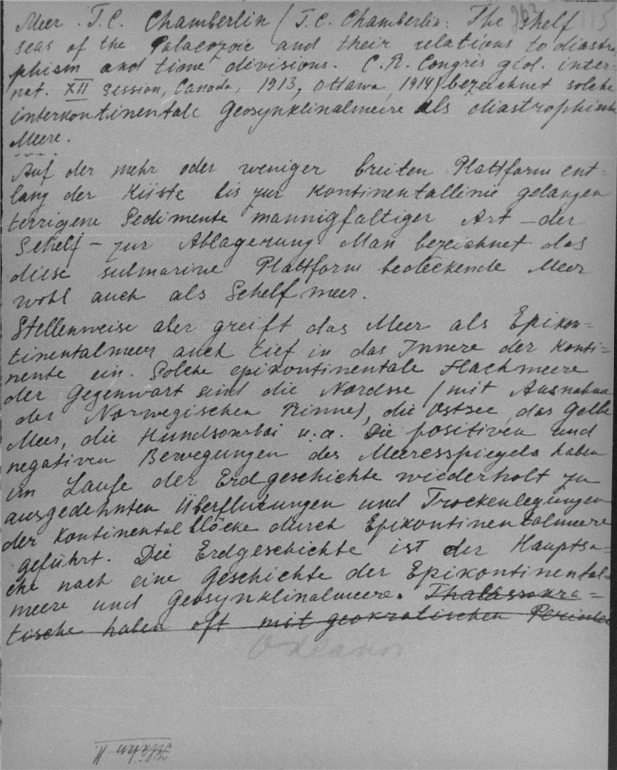 363 115
Meer. T.C. Chamberlin (T.C. Chamberlin: The shelf
seas of the Palaeozoic and their relations to diastro
phism and time divisions. C.R. Congrès géol. inter-
nat. XII session, Canada, 1913, Ottawa, 1914) bezeichnet solche
interkontinentale Geosynklinalmeere als diastrophische
Meere.
Auf der mehr oder weniger breiten Plattform ent-
lang der Küste bis zur Kontinentallinie gelangen
terrigene Sedimente mannigfaltiger Art – der
Schelf – zur Ablagerung. Man bezeichnet das
diese submarine Plattform bedeckende Meer
wohl auch als Schelfmeer.
Stellenweise aber greift das Meer als Epikon-
tinentalmeer auch tief in das Innere der Konti-
nente ein. Solche epikontinentale Flachmeere
der Gegenwart sind die Nordsee (mit Ausnahme
der Norwegischen Rinne), die Ostsee, das Gelbe
Meer, die Hundsonbai u.a. Die positiven und
negativen Bewegungen des Meeresspiegels haben
im Laufe der Erdgeschichte wiederholt zu
ausgedehnten Überflutungen und Trockenlegungen
der Kontinentalblöcke durch Epikontinentalmeere
geführt. Die Erdgeschichte ist der Hauptsa-
che nach eine Geschichte der Epikontinental-
meere und Geosynklinalmeere. Thalassokra-
tische haben oft mit geokratischen Perioden
Okeanos